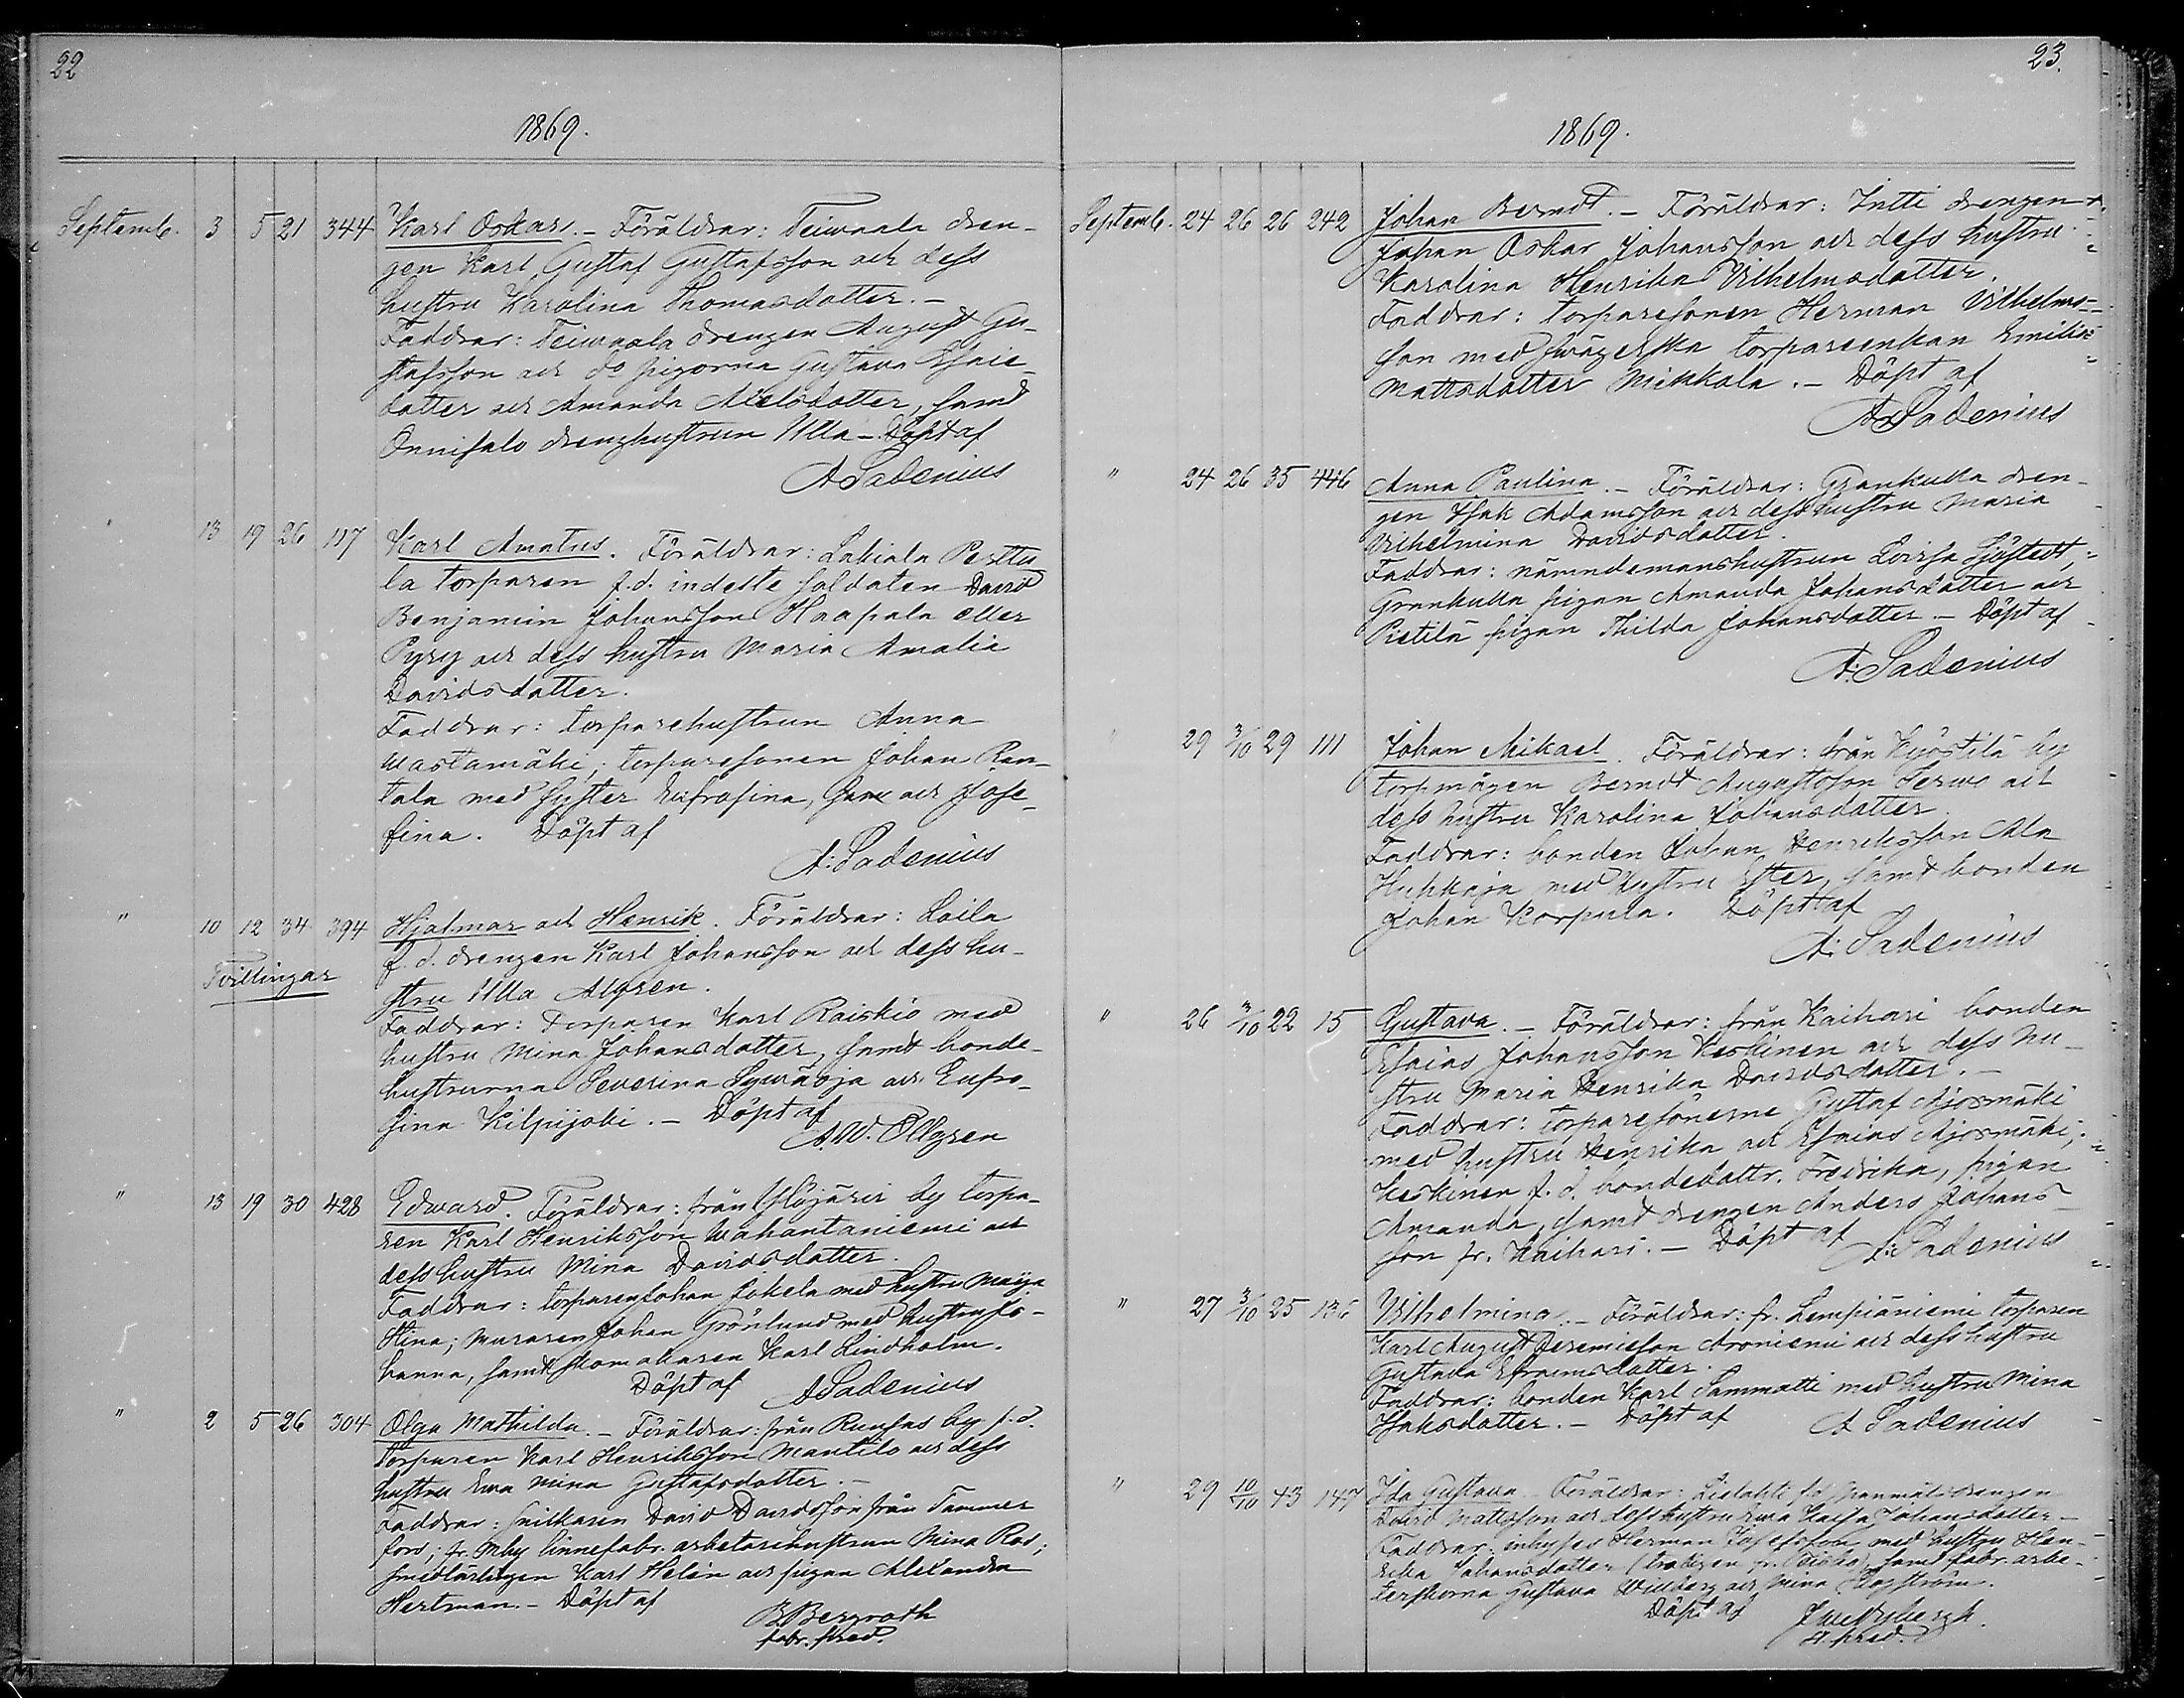 22
1869.
Septemb. 3 5 21 344 Karl Oskar. – Föräldrar: Teiwaala dren-
gen Karl Gustaf Gustafsson och dess
hustru Karolina Thomasdotter. –
Faddrar: Teiwaala drengen August Gu-
stafsson och do pigorna Gustava Esaie-
dotter och Amanda Axelsdotter, samt
Onnisalo drenghustrun Ulla – Döpt af
A Sadenius
" 13 19 26 117 Karl Amatus. Föräldrar: Lakiala Pertta
la torparen f.d. indelte soldaten David
Benjamin Johansson Haapala eller
Pyry och dess hustru Maria Amalia
Davidsdotter.
Faddrar: torparehustrun Anna
Wastamäki, torparesonen Johan Ran-
tala med syster Eufrosina, och Jose-
fina. Döpt af
A: Sadenius
" 10 12 34 394 Hjalmar och Henrik. Föräldrar: Laila
Tvillingar
f.d. drengen Karl Johansson och dess hu-
stru Ulla Algren.
Faddrar: Torparen Karl Raiskio med
hustru Mina Johansdotter, samt bonde-
hustrurna Severina Sywäoja och Eufro-
sina Kilpijoki. – Döpt af
A.W. Ollgren
" 13 19 30 428 Edward. Föräldrar: från Ylöjärvi by torpa-
ren Karl Henriksson Wahantaniemi och
dess hustru Mina Davidsdotter.
Faddrar: torparen Johan Jokela med hustru Maija
Stina; muraren Johan Grönlund med hustru Jo-
hanna, samt skomakaren Karl Lindholm.
Döpt af A Sadenius
" 2 5 26 304 Olga Mathilda. – Föräldrar: från Runsas by f.d.
torparen Karl Henriksson Mantila och dess
hustru Ewa Mina Gustafsdotter. –
Faddrar: snikaren David Davidsson från Tammer
fors; fr. Mby linnefabr. arbetarehustrun Mina Ros;
smedlärlingen Karl Helén och pigan Alexandra
Hertman. – Döpt af
B Bergroth
fabr. pred.
23.
1869.
Septemb. 24 26 26 242 Johan Berndt. – Föräldrar: Intti drengen
Johan Oskar Johansson och dess hustru
Karolina Henrika Vilhelmsdotter.
Faddrar: torparesonen Herman Vilhelms-
son med swägerska torpareenkan Emilia
Mattsdotter Mikkola. – Döpt af
A Sadenius
" 24 26 35 446 Anna Paulina. – Föräldrar: Grankulla dren-
gen Isak Adamsson och dess hustru Maria
Vilhelmina Davidsdotter.
Faddrar: nämndemanshustrun Lovisa Sjöstedt,
Grankulla pigan Amanda Johansdotter och
Pietilä pigan Thilda Johansdotter – Döpt af
A: Sadenius
" 29 3/10 29 111 Johan Mikael. Föräldrar: från Kyöstilä by
torpmågen Berndt Augustsson Serwo och
dess hustru Karolina Johansdotter.
Faddrar: bonden Johan Henriksson Ala
med hustru Ester, samt bonden
Johan Korpula. Döpt af
A: Sadenius
" 26 3/10 22 15 Gustava. – Föräldrar: från Kaihari bonden
Esaias Johansson Keskinen och dess hu-
stru Maria Henrika Davidsdotter. –
Faddrar: torparesönerne Gustaf Ajosmäki
med hustru Henrika och Esaias Ajosmäki;
Keskinen f.d. bondedottr. Fredrika, pigan
Amanda, samt drengen Anders Johans-
son fr. Kaihari. – Döpt af A: Sadenius
" 27 3/10 25 136 Vilhelmina. – Föräldrar: fr. Lempiäniemi torparen
Karl August Jeremiesson Aroniemi och dess hustru
Gustava Efraimsdotter.
Faddrar: bonden Karl Sammatti med hustru Mina
Isaksdotter. – Döpt af A Sadenius
" 29 10/10 43 147 Ida Gustava. Föräldrar: Lielahti f.d. drengen
David Mattsson och dess hustru Ewa Kaisa Johansdotter –
Faddrar: inhyses Herman Josefsson med hustru Hen-
rika Johansdotter samt fabr. arbe-
terskorna Gustava Willberg och Mina Hagström.
Döpt af